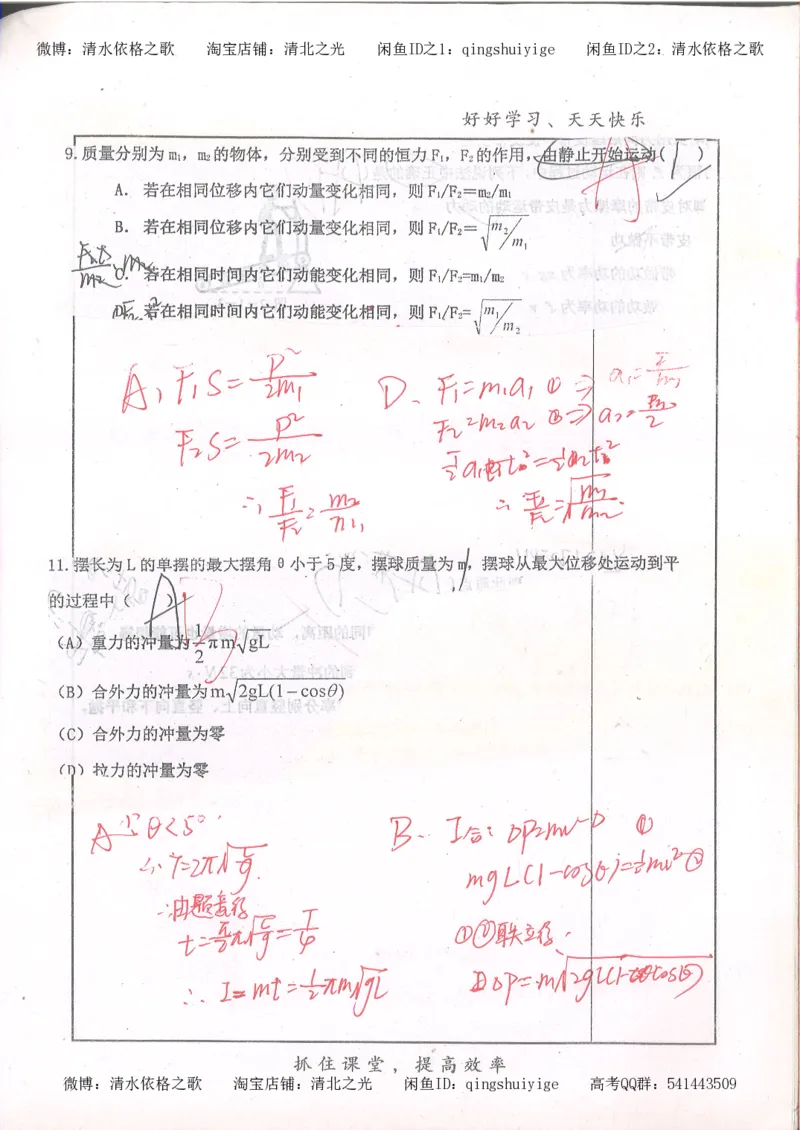 微博：清水依格之歌 淘宝店铺：清北之光 闲鱼ID之1：qingshuiyige 闲鱼ID之2：清水依格之歌
好好学习、天天快乐
9.质量分别为 m₁，m₂ 的物体，分别受到不同的恒力 F₁，F₂ 的作用，由静止开始运动( )
A. 若在相同位移内它们动量变化相同，则 F₁/F₂＝m₂/m₁
B. 若在相同位移内它们动量变化相同，则 F₁/F₂＝√(m₂/m₁)
C. 若在相同时间内它们动能变化相同，则 F₁/F₂=m₁/m₂
D. 若在相同时间内它们动能变化相同，则 F₁/F₂= √(m₁/m₂)
A, F₁S = P²/2m₁
F₂S = P²/2m₂
∴ F₁/F₂ = m₂/m₁
D、 F₁=m₁a₁ ① ⇒
F₂=m₂a₂ ②⇒
11.摆长为 L 的单摆的最大摆角 θ 小于 5 度，摆球质量为 m，摆球从最大位移处运动到平
的过程中（ A ）
（A）重力的冲量为 ½πm√gL
（B）合外力的冲量为 m√2gL(1−cosθ)
（C）合外力的冲量为零
（D）拉力的冲量为零
A ∵ θ<5°
∴ T=2π√(L/g).
∴由题意得
∴ I=mt=½πm√gL
B. I合= ΔP=mv-0 ①
mgL(1-cosθ)=½mv² ②
①②联立得,
ΔP=m√2gL(1-cosθ)
抓住课堂，提高效率
微博：清水依格之歌 淘宝店铺：清北之光 闲鱼ID：qingshuiyige 高考QQ群：541443509